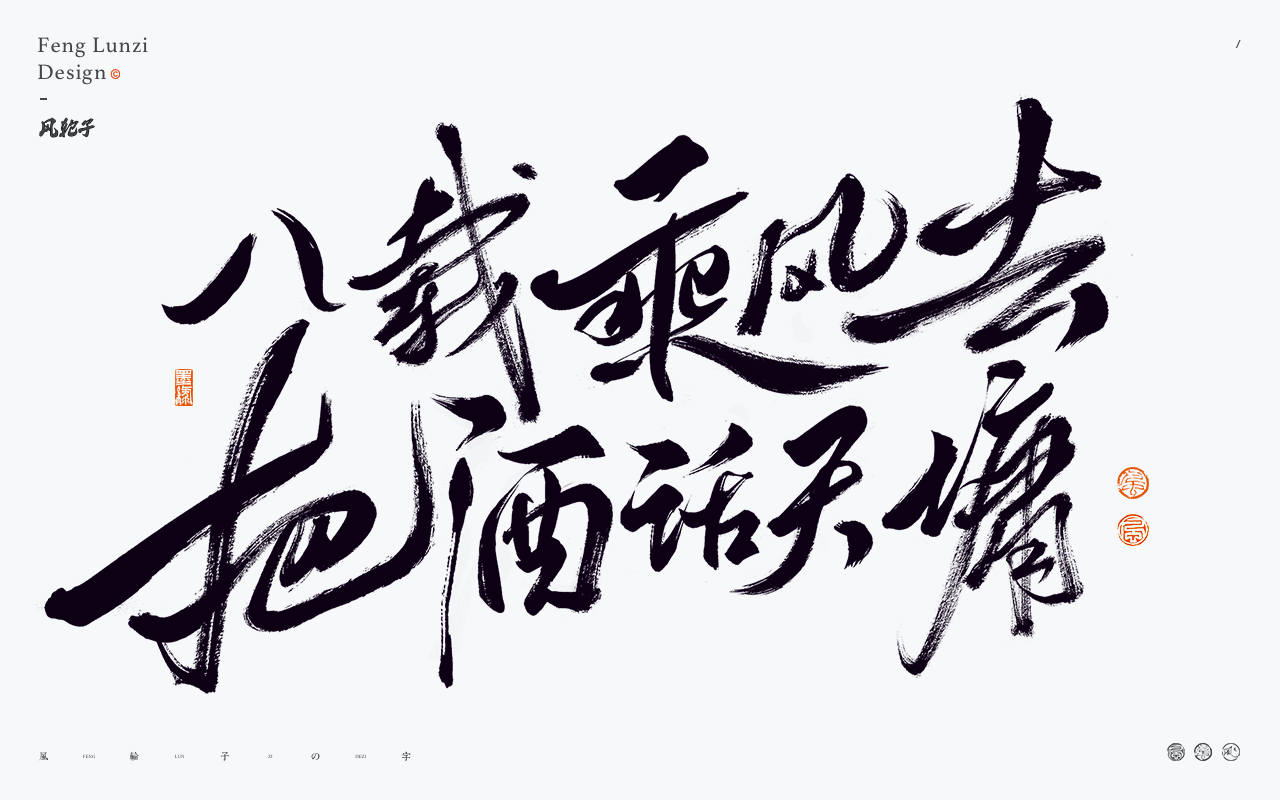 Feng Lunzi
Design©
-
风轮子
/
八载乘风去
把酒话天慵
風 FENG 輪 LUN 子 ZI の DEZI 字